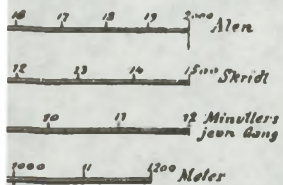 16 17 18 19 2000 Alen
12 13 14 1500 Skridt
10 11 12 Minutters
jevn Gang
1000 11 1200 Meter